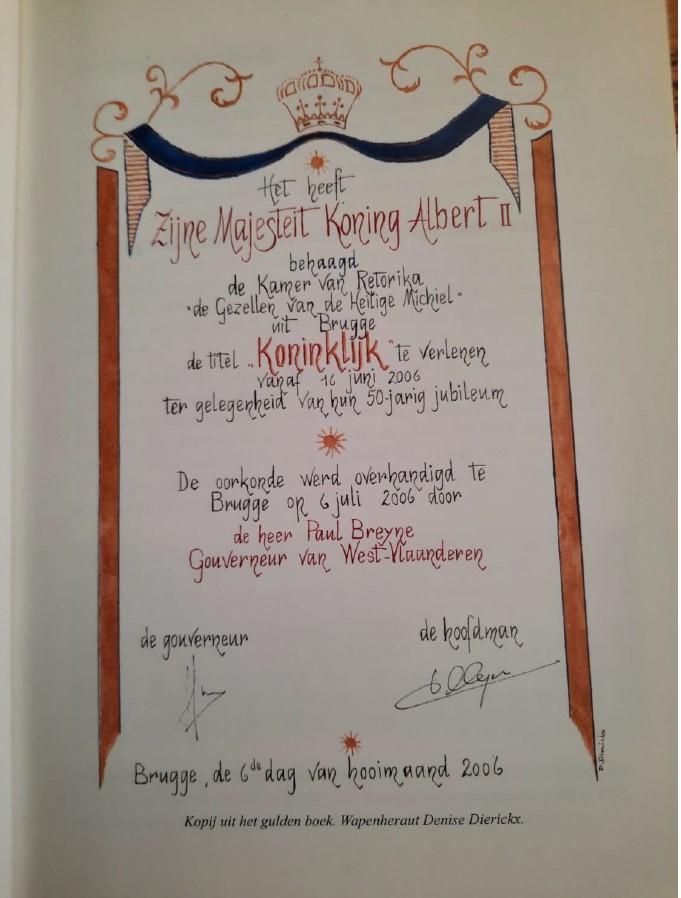 Het heeft
Zijne Majesteit Koning Albert II
behaagd
de Kamer van Retorika
"de Gezellen van de Heilige Michiel"
uit Brugge
de titel "Koninklijk" te verlenen
vanaf 16 juni 2006
ter gelegenheid van hun 50-jarig jubileum
De oorkonde werd overhandigd te
Brugge op 6 juli 2006 door
de heer Paul Breyne
Gouverneur van West-Vlaanderen
de gouverneur
de hoofdman
Brugge, de 6de dag van hooimaand 2006
Kopij uit het gulden boek. Wapenheraut Denise Dierickx.